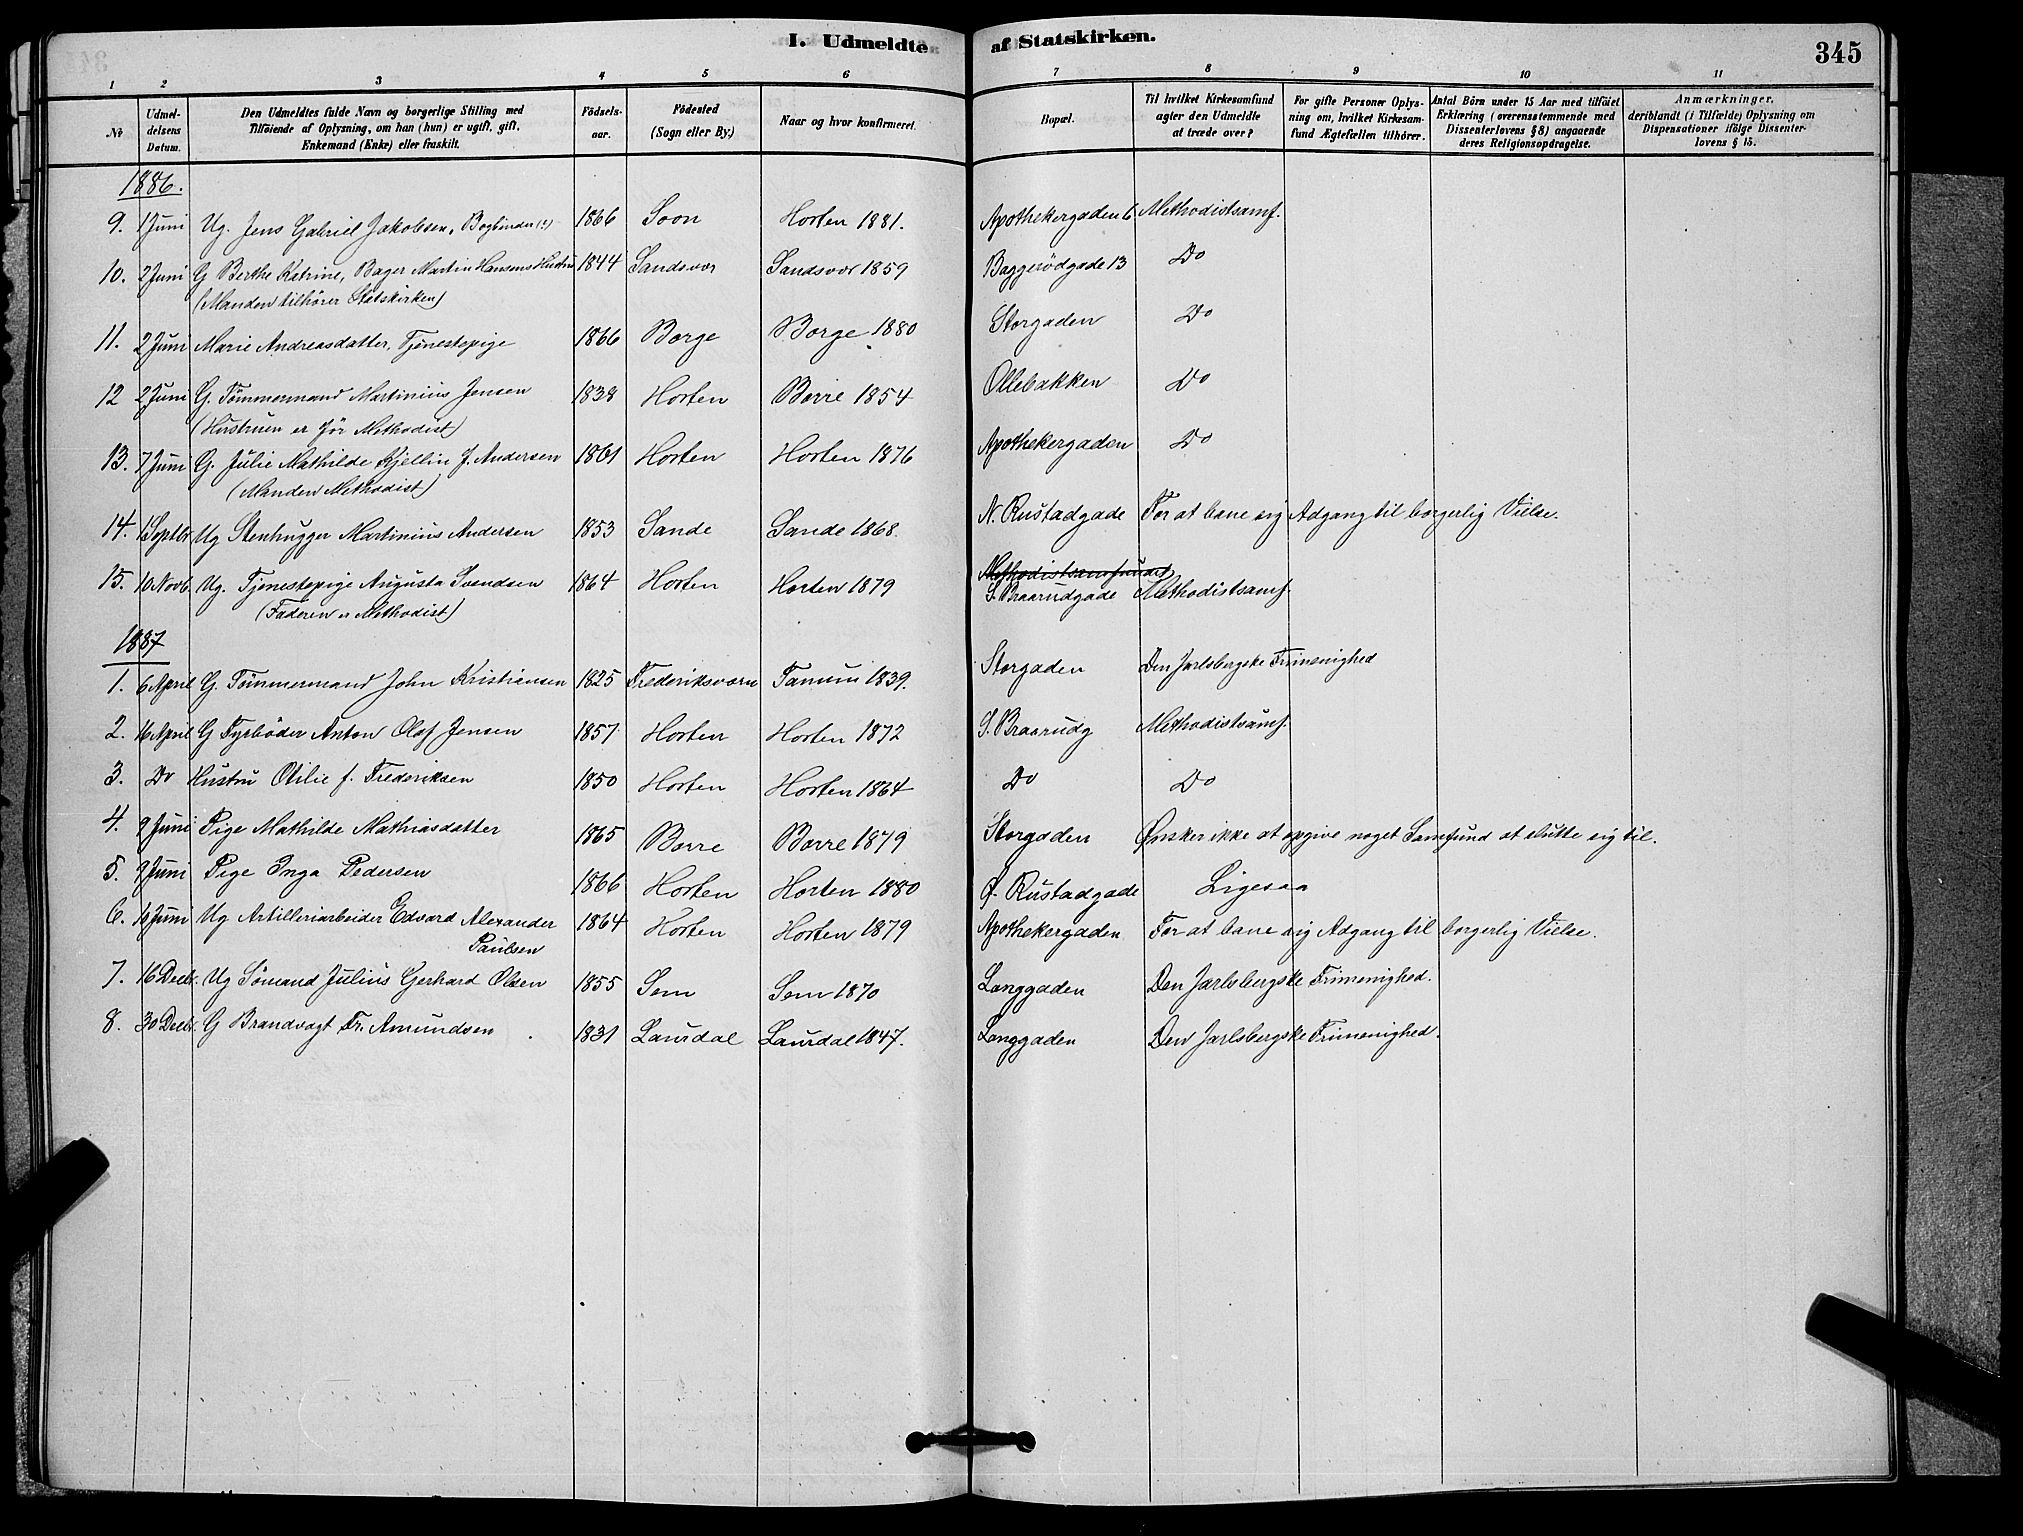 I. Udmeldte af Statskirken.
345
1 2 3 4 5 6 7 8 9 10 11
No
Udmel-
delsens
Datum.
Den Udmeldtes fulde Navn og borgerlige Stilling med
Tilföiende af Oplysning, om han (hun) er ugift, gift,
Enkemand (Enke) eller fraskilt.
Födsels-
aar.
Födested
(Sogn eller By.)
Naar og hvor konfirmeret.
Bopæl.
Til hvilket Kirkesamfund
agter den Udmeldte
at træde over?
For gifte Personer Oplys-
ning om, hvilket Kirkesam-
fund Ægtefællen tilhörer.
Antal Börn under 15 Aar med tilföiet
Erklæring (overensstemmende med
Dissenterlovens § 8) angaaende
deres Religionsopdragelse.
Anmærkninger,
deriblandt (i Tilfælde) Oplysning om
Dispensationer ifölge Dissenter-
lovens § 15.
1886.
9. 1 Juni Ug. Jens Gabriel Jakobsen, Bogbinder (?) 1866 Soon Horten 1881. Apothekergaden 6 Methodistsamf.
10. 2 Juni G Berthe Katrine, Bager Martin Hansens Hustru 1844 Sandsvær Sandsvær 1859 Baggerödgade 13 Do
(Manden tilhörer Statskirken)
11. 2 Juni Marie Andreasdatter, Tjenestepige 1866 Borge Borge 1880 Storgaden Do
12 2 Juni G. Tömmermand Martinius Jensen 1838 Horten Borre 1854 Ollebakken Do
(Hustruen er för Methodist)
13. 7 Juni G. Julie Mathilde Kjellin f. Andersen 1861 Horten Horten 1876 Apothekergaden Do
(Manden Methodist)
14. 1 Septbr Ug Stenhugger Martinius Andersen 1853 Sande Sande 1868. N. Rustadgade For at bane sig Adgang til borgerlig Vielse.
Methodistsamfundet
15. 10 Novb. Ug. Tjenestepige Augusta Svendsen 1864 Horten Horten 1879 S. Braarudgade Methodistsamf.
(Faderen er Methodist)
1887
1. 6 April G. Tömmermand John Kristiansen 1825 Frederiksværn Tanum 1839. Storgaden Den Jarlsbergske Frimenighed
2. 16 April G Fyrböder Anton Olaf Jensen 1857 Horten Horten 1872 S. Braarudg Methodistsamf.
3. Do Hustru Otilie f. Frederiksen 1850 Horten Horten 1864 Do Do
4. 9 Juni Pige Mathilde Mathiasdatter 1865 Borre Borre 1879 Storgaden Ønsker ikke at opgive noget Samfund at slutte sig til.
5. 9 Juni Pige Inga Pedersen 1866 Horten Horten 1880 Ø. Rustadgade Ligesaa
6. Juni Ug Artilleriarbeider Edvard Alexander 1864 Horten Horten 1879 Apothekergaden For at bane sig Adgang til borgerlig Vielse.
Paulsen
7. 16 Decbr. Ug Sömand Julius Gerhard Olsen 1855 Sem Sem 1870 Langgaden Den Jarlsbergske Frimenighed.
8. 30 Decbr. G Brandvagt Fr. Amundsen 1831 Laurdal Laurdal 1847. Langgaden Den Jarlsbergske Frimenighed.